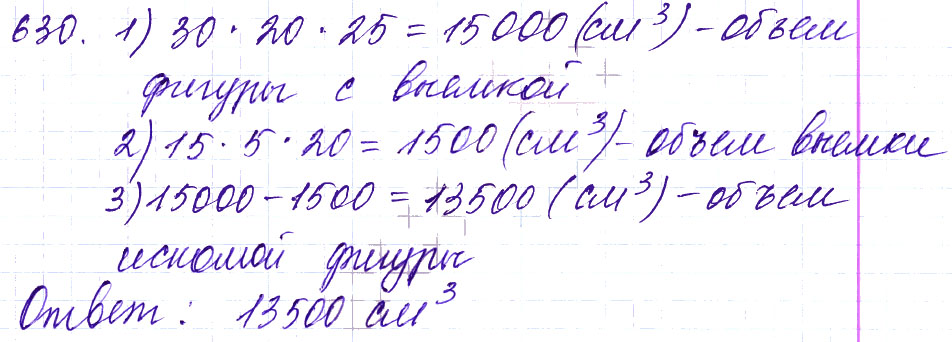 630. 1) 30 · 20 · 25 = 15000 (см³) - объем
фигуры с выемкой
2) 15 · 5 · 20 = 1500 (см³) - объем выемки
3) 15000 - 1500 = 13500 (см³) - объем
искомой фигуры
Ответ: 13500 см³